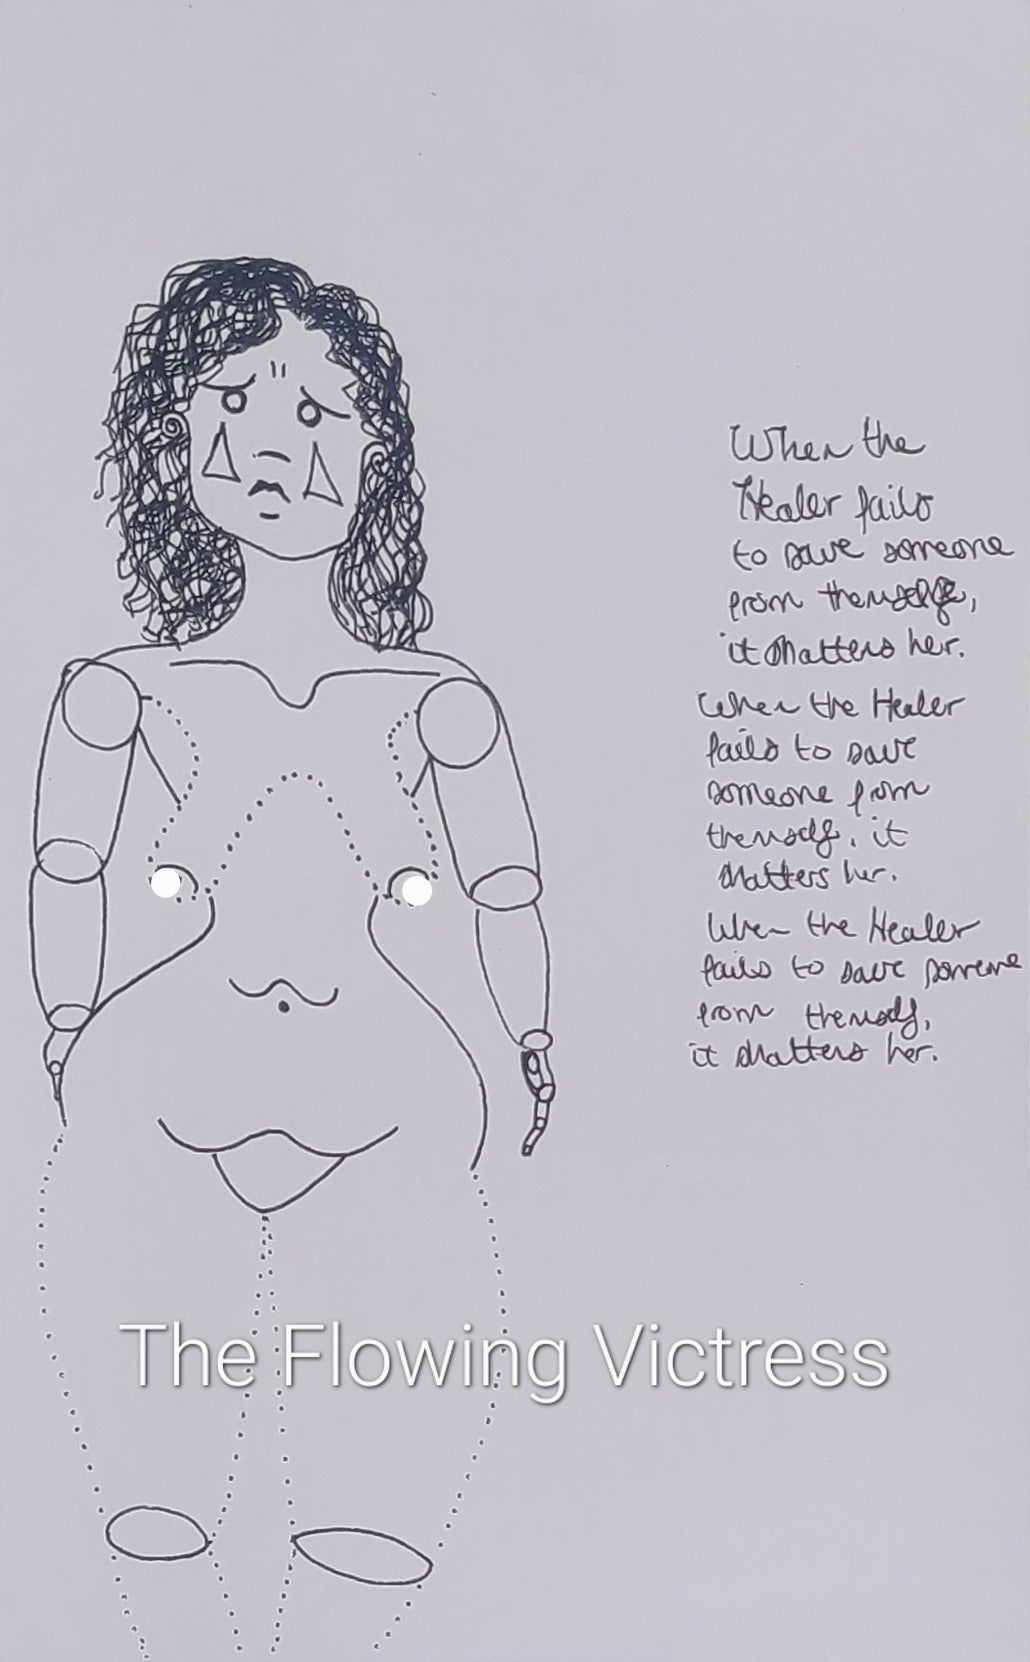 When the
Healer fails
to save someone
from themself,
it shatters her.
When the Healer
fails to save
someone from
themself, it
shatters her.
When the Healer
fails to save someone
from themself,
it shatters her.
The Flowing Victress